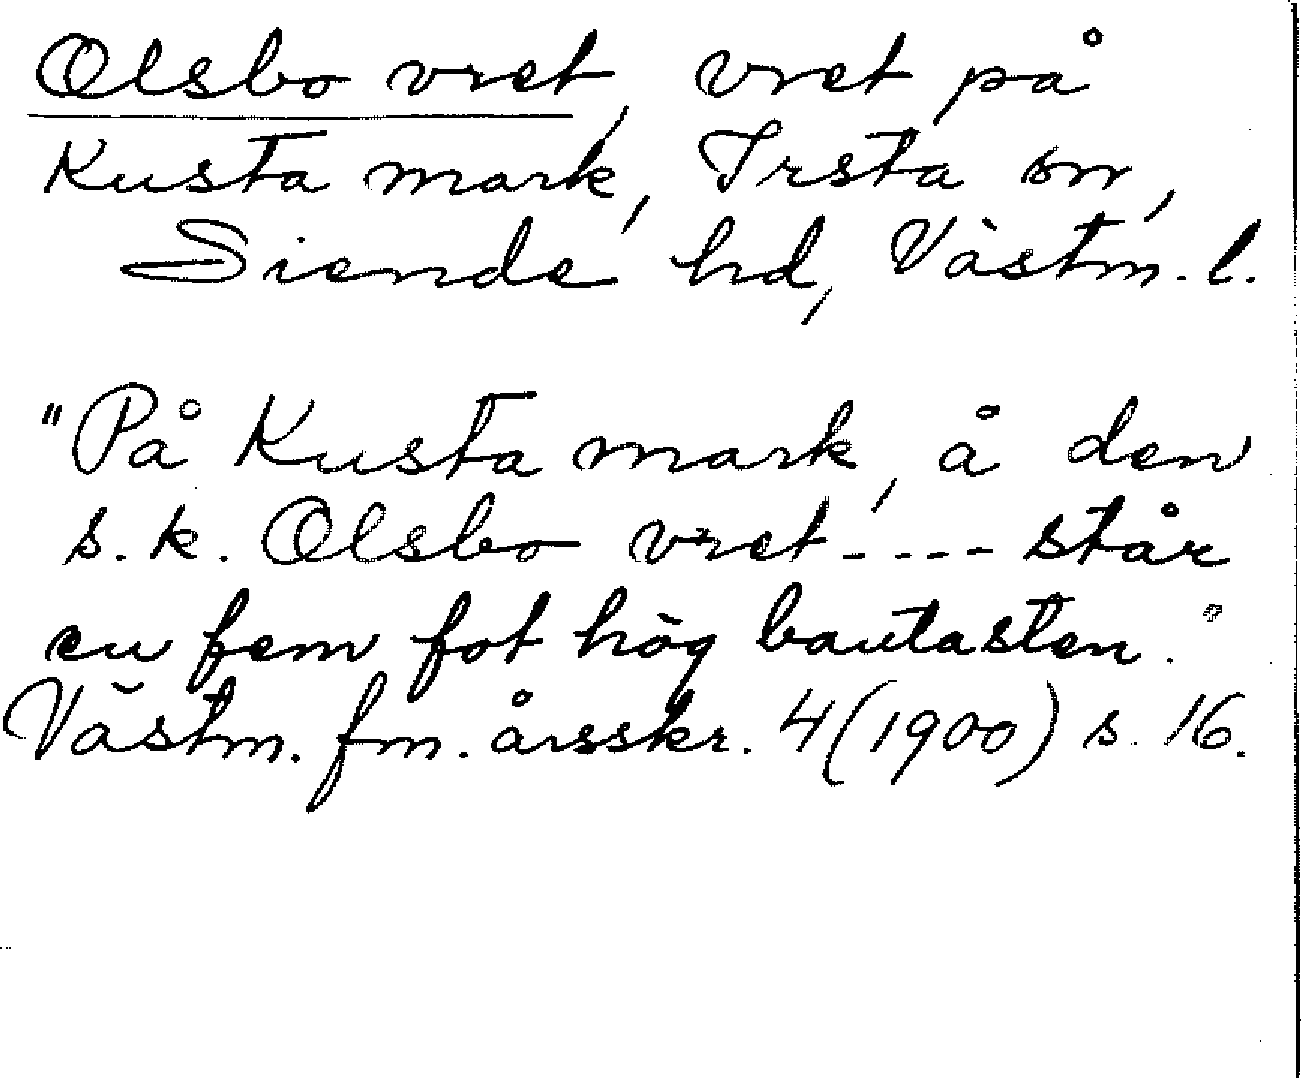 Olsbo vret, vret på
Kusta mark, Irsta sn,
Siende hd, Västm. l.
"På Kusta mark, å den
s. k. Olsbo vret ---- står
en fem fot hög bautasten."
Västm. fm. årsskr. 4 (1900) s. 16.